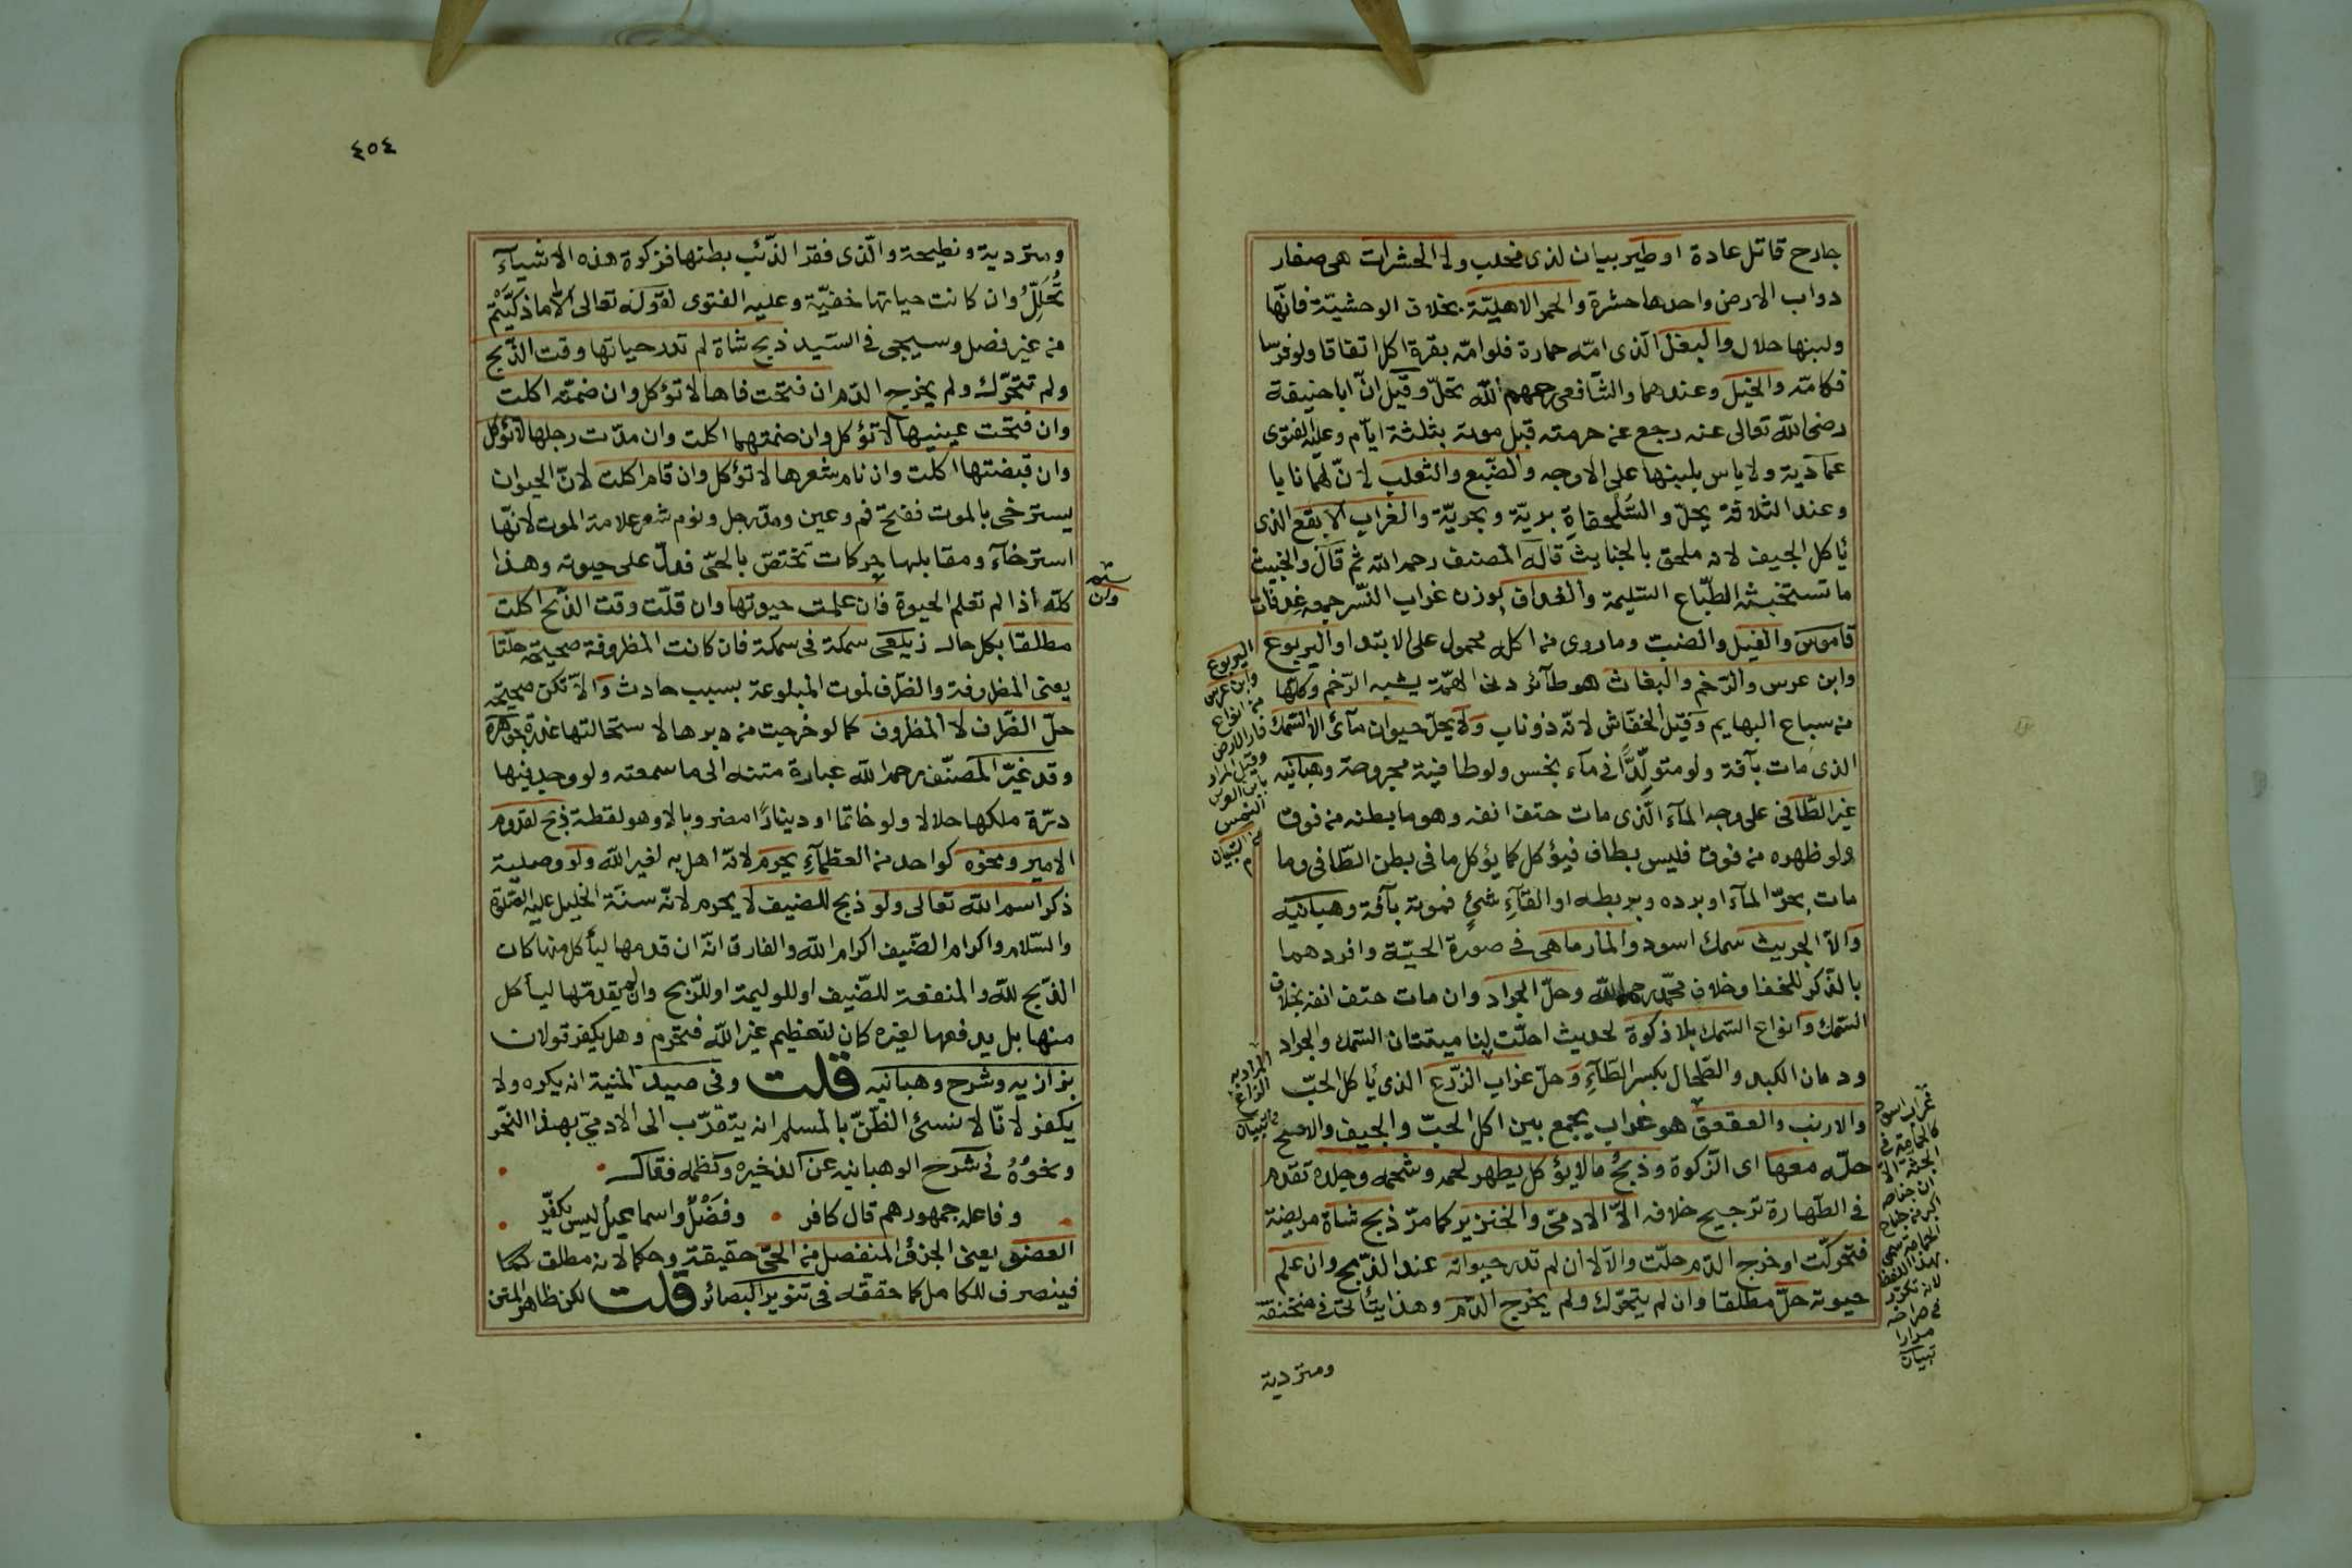 جارح قاتل عادة او طير بيان لذى مخلب ولا الحشرات هى صغار
دواب الارض واحدها حشرة والحمر الاهليّة بخلاف الوحشيّة فانّها
ولبنها حلال والبغل الّذى امّه حمارة فلو امّه بقرة اكل اتفاقا ولو فرسا
فكامّه والخيل وعندهما والشّافعى رحمهم اللّه تحلّ وقيل انّ ابا حنيفة
رضى اللّه تعالى عنه رجع عن حرمته قبل موته بثلثة ايّام وعليه الفتوى
عماديّة ولا باس بلبنها على الاوجه والضّبع والثعلب لانّ لهما نابا
وعند الثلاثة يحلّ والسُّلَحفاةِ بريّة وبحريّة والغراب الابقع الذى
يأكل الجيف لانه ملحق بالخبايث قاله المصنف رحمه اللّه ثم قال والخبيث
ما تستخبثه الطّباع السّليمة والغداف بوزن غراب النّسر جمعه غدفان
قاموس والفيل والضبّ وما روى من اكله محمول على الابتدا واليربوع
وابن عرس والرّخم والبغاث هو طآئر دنى الهمّة يشبه الرّخم وكلّها
من سباع البهايم وقيل الخفّاش لانّه ذو ناب ولا يحلّ حيوان مآئى الا السّمك
الذى مات بآفة ولو متولِّدًا فى مآء نجس ولو طافية مجروحة وهبانيه
غير الطّافى على وجه المآء الّذى مات حتف انفه وهو ما بطنه من فوق
ولو ظهره من فوق فليس بطاف فيؤكل كما يؤكل ما فى بطن الطّافى وما
مات بحرّ المآء او برده وبربطه او القآءِ شئٍ فموته بآفة وهبانيه
والّا الجريث سمك اسود والمارماهى فى صورة الحيّة وافردهما
بالذّكر للخفا وخلاف محمّد رحمه اللّه وحلّ الجراد وان مات حتف انفه بخلاف
السّمك وانواع السّمك بلا ذكوة لحديث احلّت لنا ميتتان السّمك والجراد
ودمان الكبد والطّحال بكسر الطّآءِ وحلّ غراب الزّرع الذى يأكل الحبّ
والارنب والعقعق هو غراب يجمع بين اكل الحبّ والجيف والاصح
حلّه معها اى الذّكوة وذبحُ ما لا يؤكل يطهر لحمه وشحمه وجلده تقدم
فى الطّهارة ترجيح خلافه الّا الادمىّ والخنزير كما مرّ ذبح شاة مريضة
فتحركّت او خرج الدّم حلّت والّا لا ان لم تدر حيوته عند الذّبح وان علم
حيوته حلّ مطلقا وان لم يتحرّك ولم يخرج الدّم وهذا يتأتى فى منخنقة
ومتردية
اليربوع
وابن عرس
من انواع
فار الارض
وقيل المراد
بابن العرس
النمس
من التبيان
المراد به
الزاغ
تبيان
غراب اسود
كالحمامة فى
الجثّة الّا
ان جناحه
اكبر من جناح
الحمامة سمى
بهذا اللّفظ
لانه تكرّر
فى صراخه
مرارا
تبيان
٤٥٤
ومتردية ونطيحة والّذى فقر الذّئب بطنها فذكوة هذه الاشيآء
تُحَلِّلُ وان كانت حياتها خفيّة وعليه الفتوى لقوله تعالى الّا ما ذكّيتم
من غير فصل وسيجى فى الصّيد ذبح شاة لم تدر حياتها وقت الذّبح
ولم تتحرّك ولم يخرج الدّم ان فتحت فاها لا تؤكل وان ضمّته اكلت
وان فتحت عينيها لا تؤكل وان ضمتهما اكلت وان مدّت رجلها لا تؤكل
وان قبضتها اكلت وان نام شعرها لا تؤكل وان قام اكلت لانّ الحيوان
يسترخى بالموت ففتح فم وعين ومدّ رجل ونوم شعر علامة الموت لانّها
استرخآء ومقابلها حركات تختصّ بالحّى فدلّ على حيوته وهذا
كلّه اذا لم تعلم الحيوة فان علمت حيوتها وان قلّت وقت الذّبح اكلت
مطلقا بكل حال زيلعى سمكة فى سمكة فان كانت المظروفة صحيحة حلّتا
يعنى المظروفة والظّرف لموت المبلوعة بسبب حادث والّا تكن صحيحة
حلّ الظّرف لا المظروف كما لو خرجت من دبرها لاستحالتها عذرة جوهره
وقد غيّر المصنّف رحمه اللّه عبارة متنه الى ما سمعته ولو وجد فيها
درّة ملكها حلالا ولو خاتما او دينارًا مضروبا لا وهو لقطة ذبح لقدوم
الامير ونحوه كواحد من العظمآءِ يحرم لانّه اهل به لغير اللّه ولو وصلية
ذكر اسم اللّه تعالى ولو ذبح للضيف لا يحرم لانّه سنّة الخليل عليه الصّلوة
والسّلام واكرام الضّيف اكرام اللّه والفارق انّه ان قدمها ليأكل منها كان
الذّبح للّه والمنفعة للضّيف او للوليمة او للرّبح وان لم يقدّمها ليأكل
منها بل يدفعها لغيره كان لتعظيم غير اللّه فتحرم وهل يكفر قولان
بزازيه وشرح وهبانيه قلت وفى صيد المنية انه يكره ولا
يكفر لانّا لا نسئ الظّنّ بالمسلم انه يتقرّب الى الادمىّ بهذا النّحر
ونحوُهُ فى شرح الوهبانيه عن الذخيره ونظمه فقال
وفاعله جمهورهم قال كافر وفضلٌ واسماعيلُ ليس يكفّر
العضو يعنى الجزؤ المنفصل من الحىّ حقيقة وحكما لانه مطلق
فينصرف للكامل كما حققّه فى تنوير البصائر قلت لكن ظاهر المتن
وان